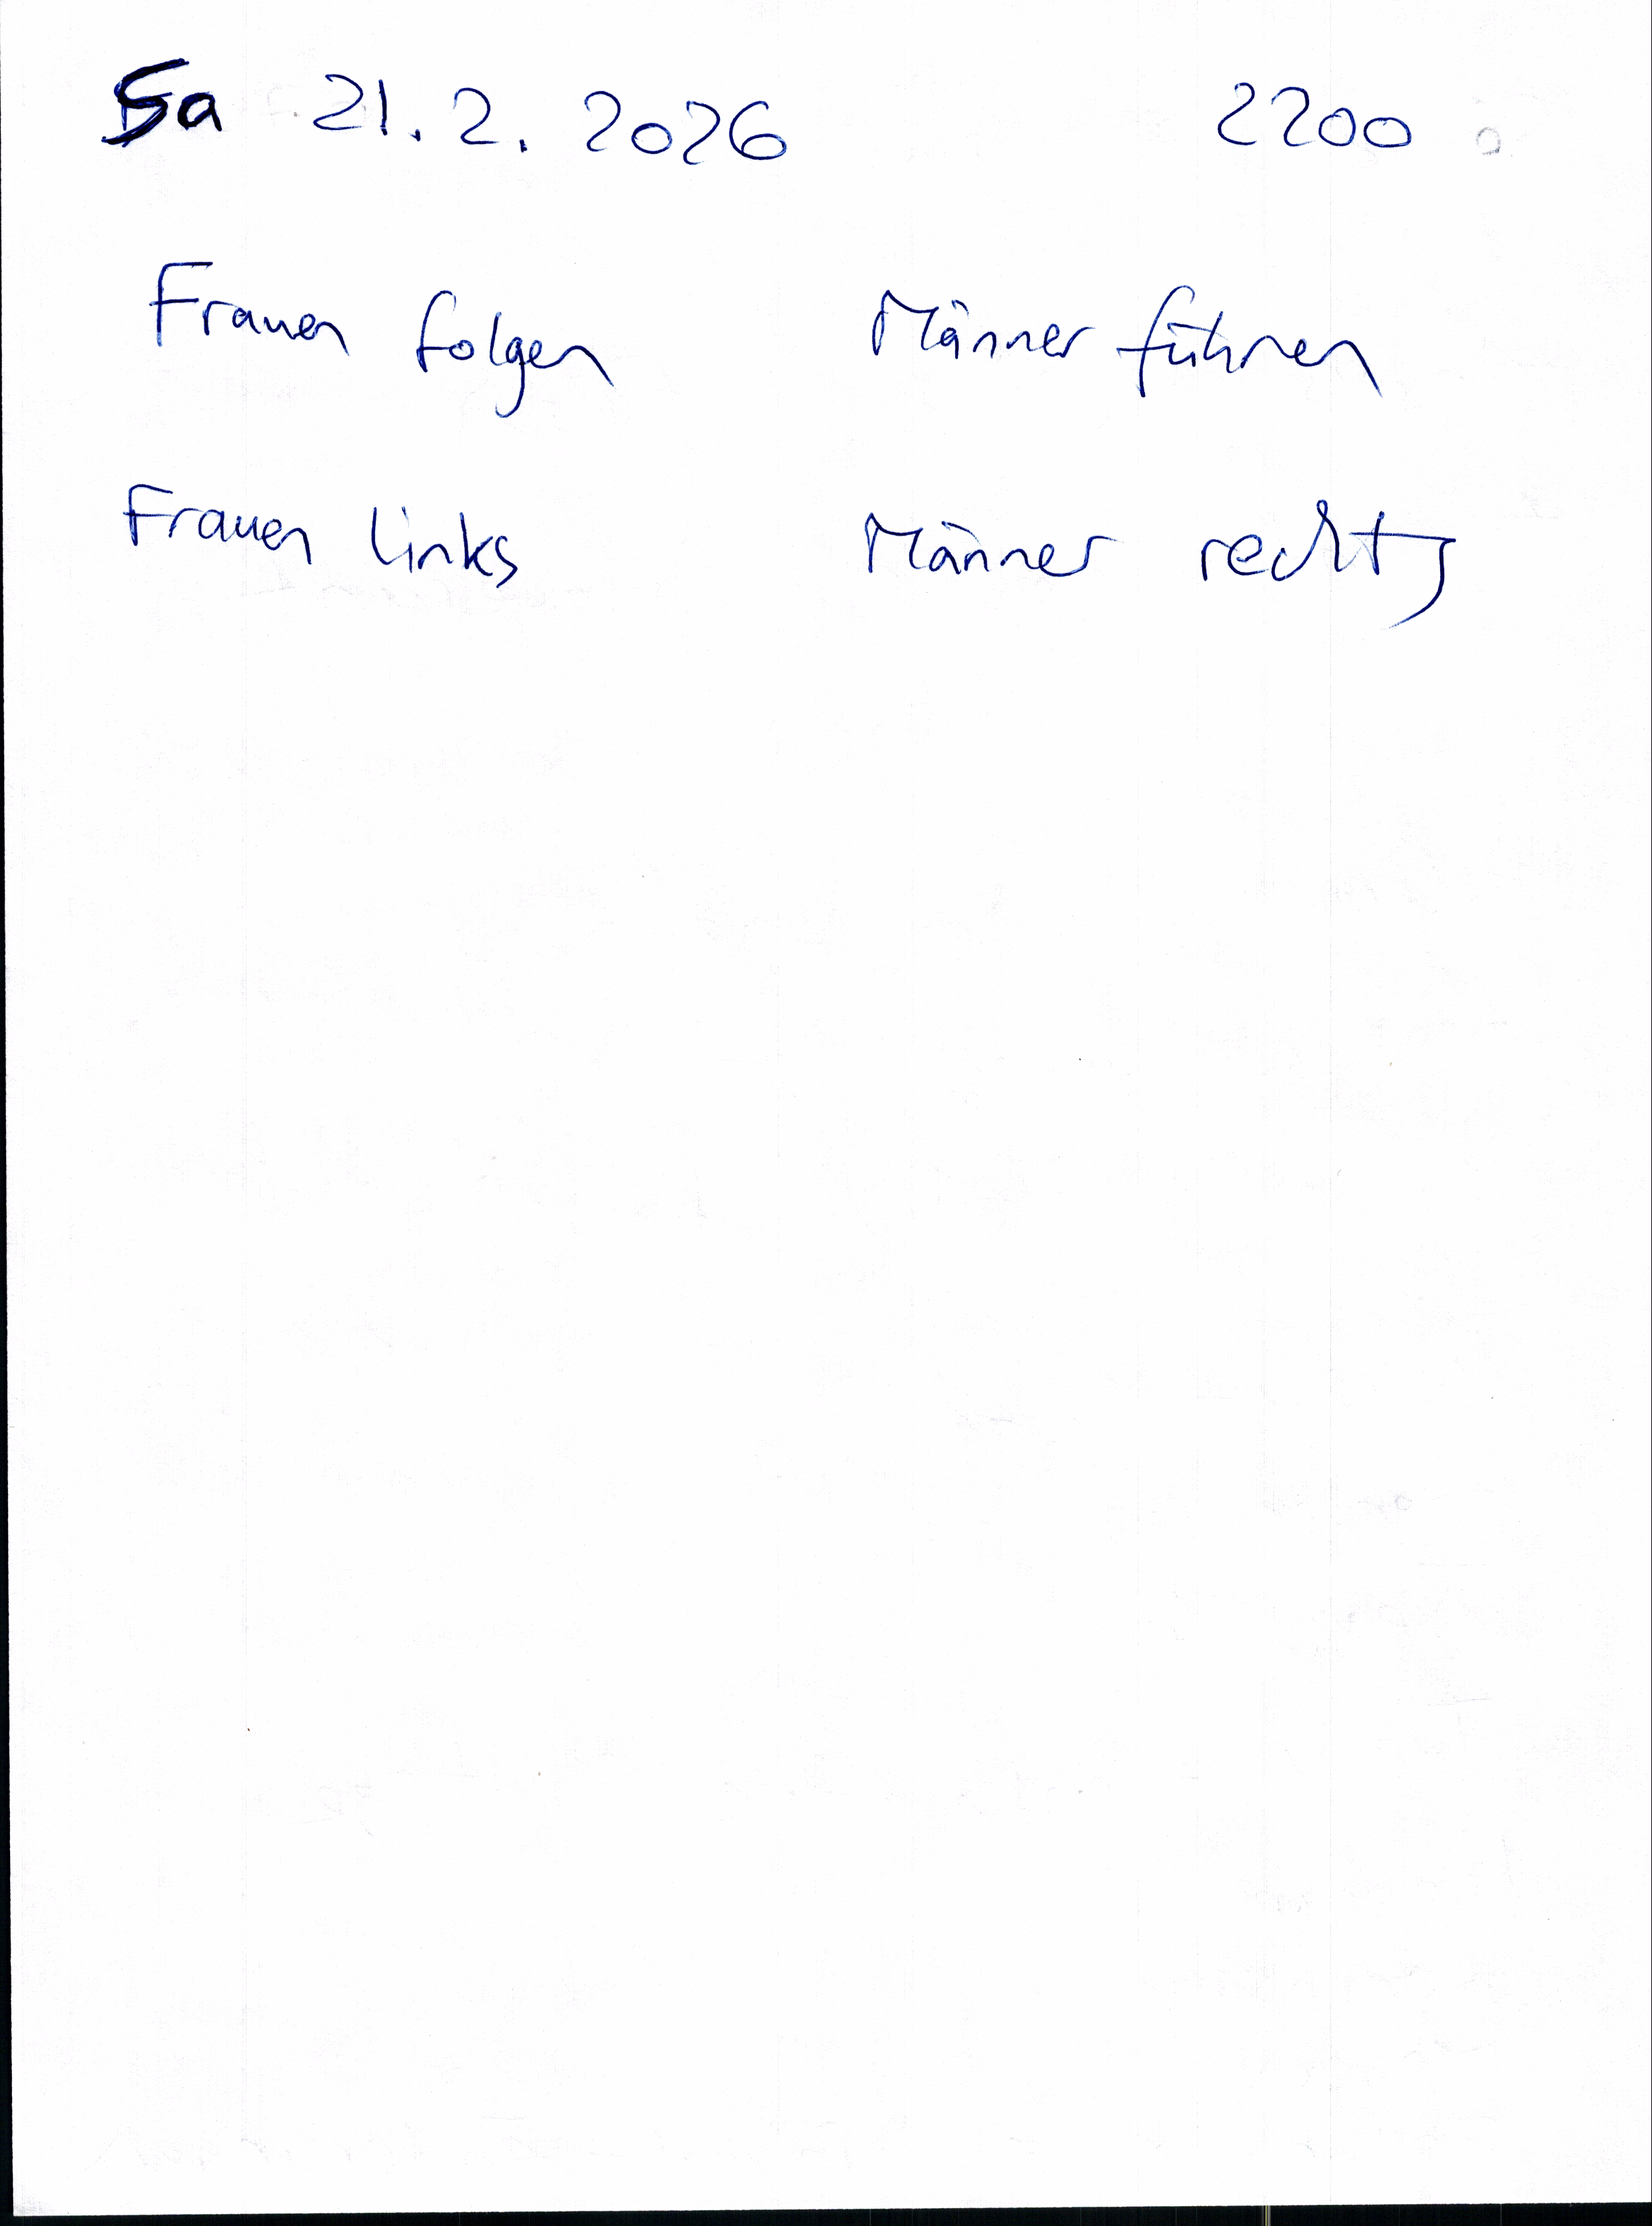 Sa 21. 2. 2026 2200
Frauen folgen Männer führen
Frauen links Männer rechts